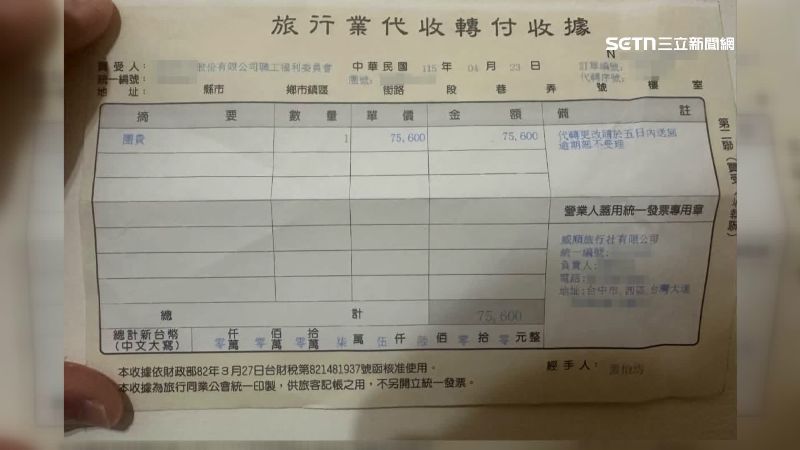 旅行業代收轉付收據
SETN三立新聞網
N
買受人: 股份有限公司職工福利委員會 中華民國 115 年 04 月 23 日 訂單編號:
統一編號: 團號: 代轉序號:
地址: 縣市 鄉市鎮區 街路 段 巷 弄 號 樓 室
摘要 數量 單價 金額 備註
團費 1 75,600 75,600 代轉更改請於五日內送回
逾期恕不受理
營業人蓋用統一發票專用章
威順旅行社有限公司
統一編號:
負責人:
電話:
地址:台中市 西區 台灣大道
總計 75,600
總計新台幣 零仟萬 零佰萬 零拾萬 柒萬 伍仟 陸佰 零拾 零元整
(中文大寫)
本收據依財政部82年3月27日台財稅第821481937號函核准使用。
本收據為旅行同業公會統一印製,供旅客記帳之用,不另開立統一發票。
經手人:
第二聯